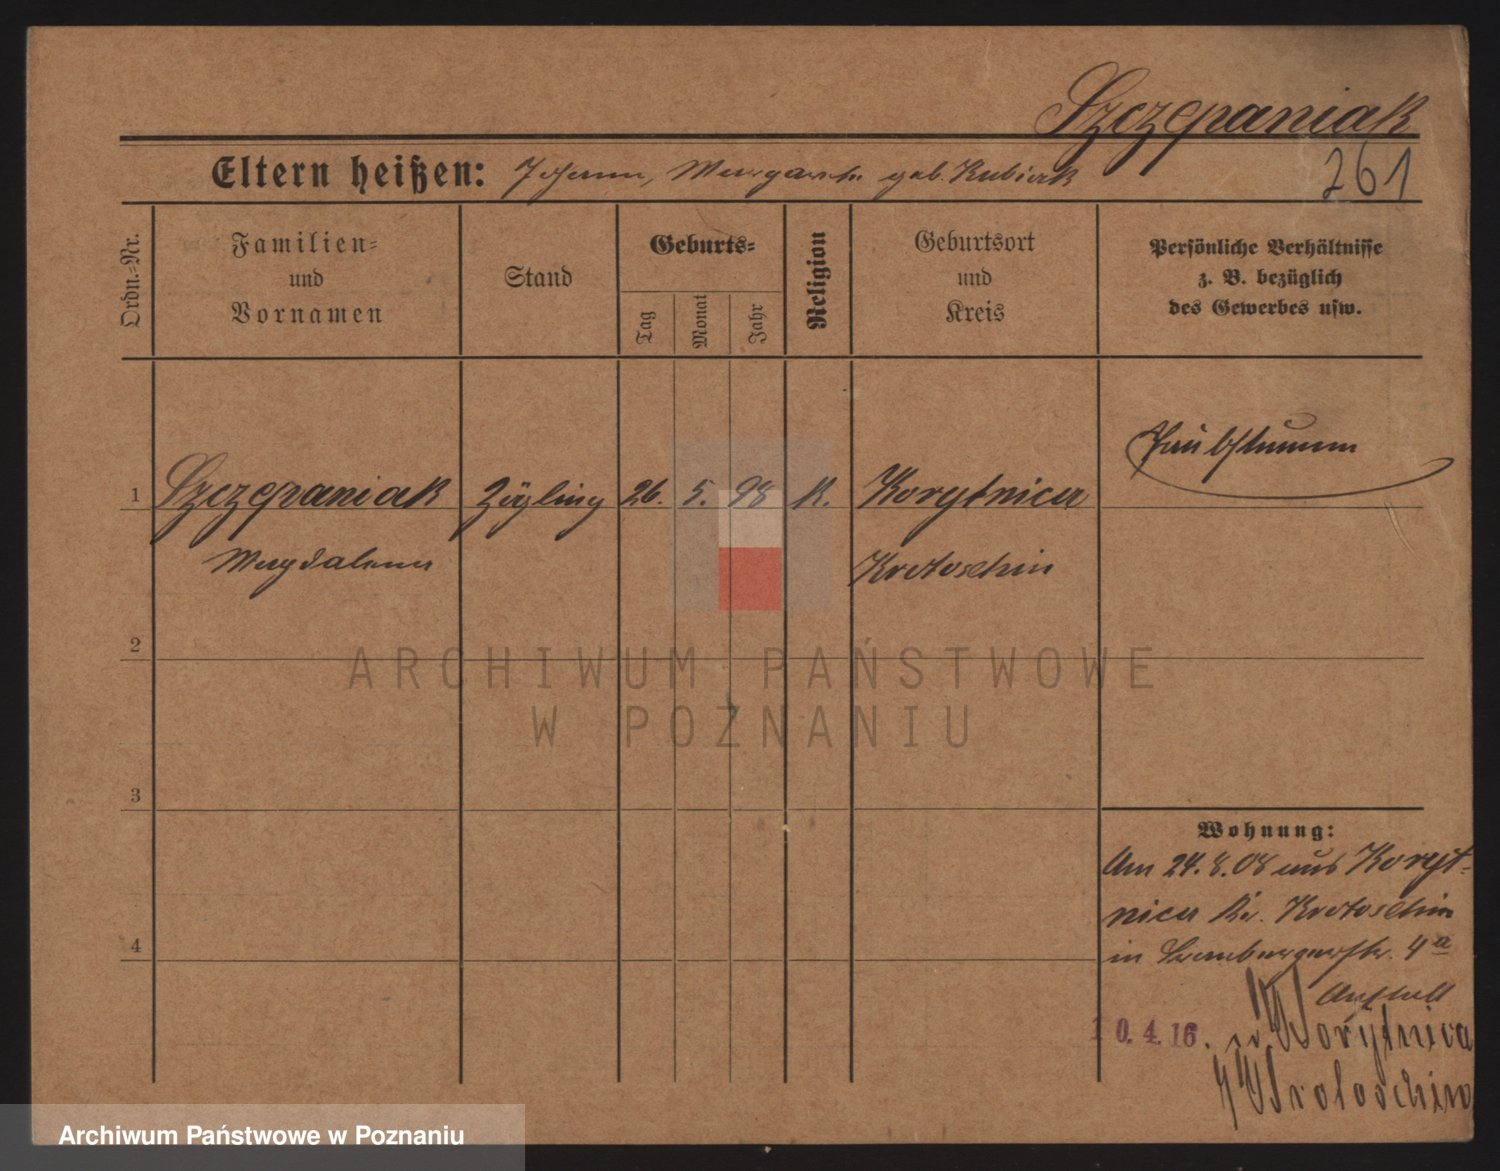 Szczepaniak
Eltern heißen: Johann, Margareth. geb. Kubiak
261
Ordn.-Nr.
Familien-
und
Vornamen
Stand
Geburts-
Tag
Monat
Jahr
Religion
Geburtsort
und
Kreis
Persönliche Verhältnisse
z. B. bezüglich
des Gewerbes usw.
Taubstumm
1 Szczepaniak Zögling 26. 5. 98 K. Korytnica
Magdalena Krotoschin
2
ARCHIWUM PAŃSTWOWE
W POZNANIU
3
Wohnung:
Am 24.8.08 aus Koryt-
nica Kr. Krotoschin
4
in Bromburgerstr. 4a
Anstalt
10.4.16. n. Korytnica
Krotoschin
Archiwum Państwowe w Poznaniu